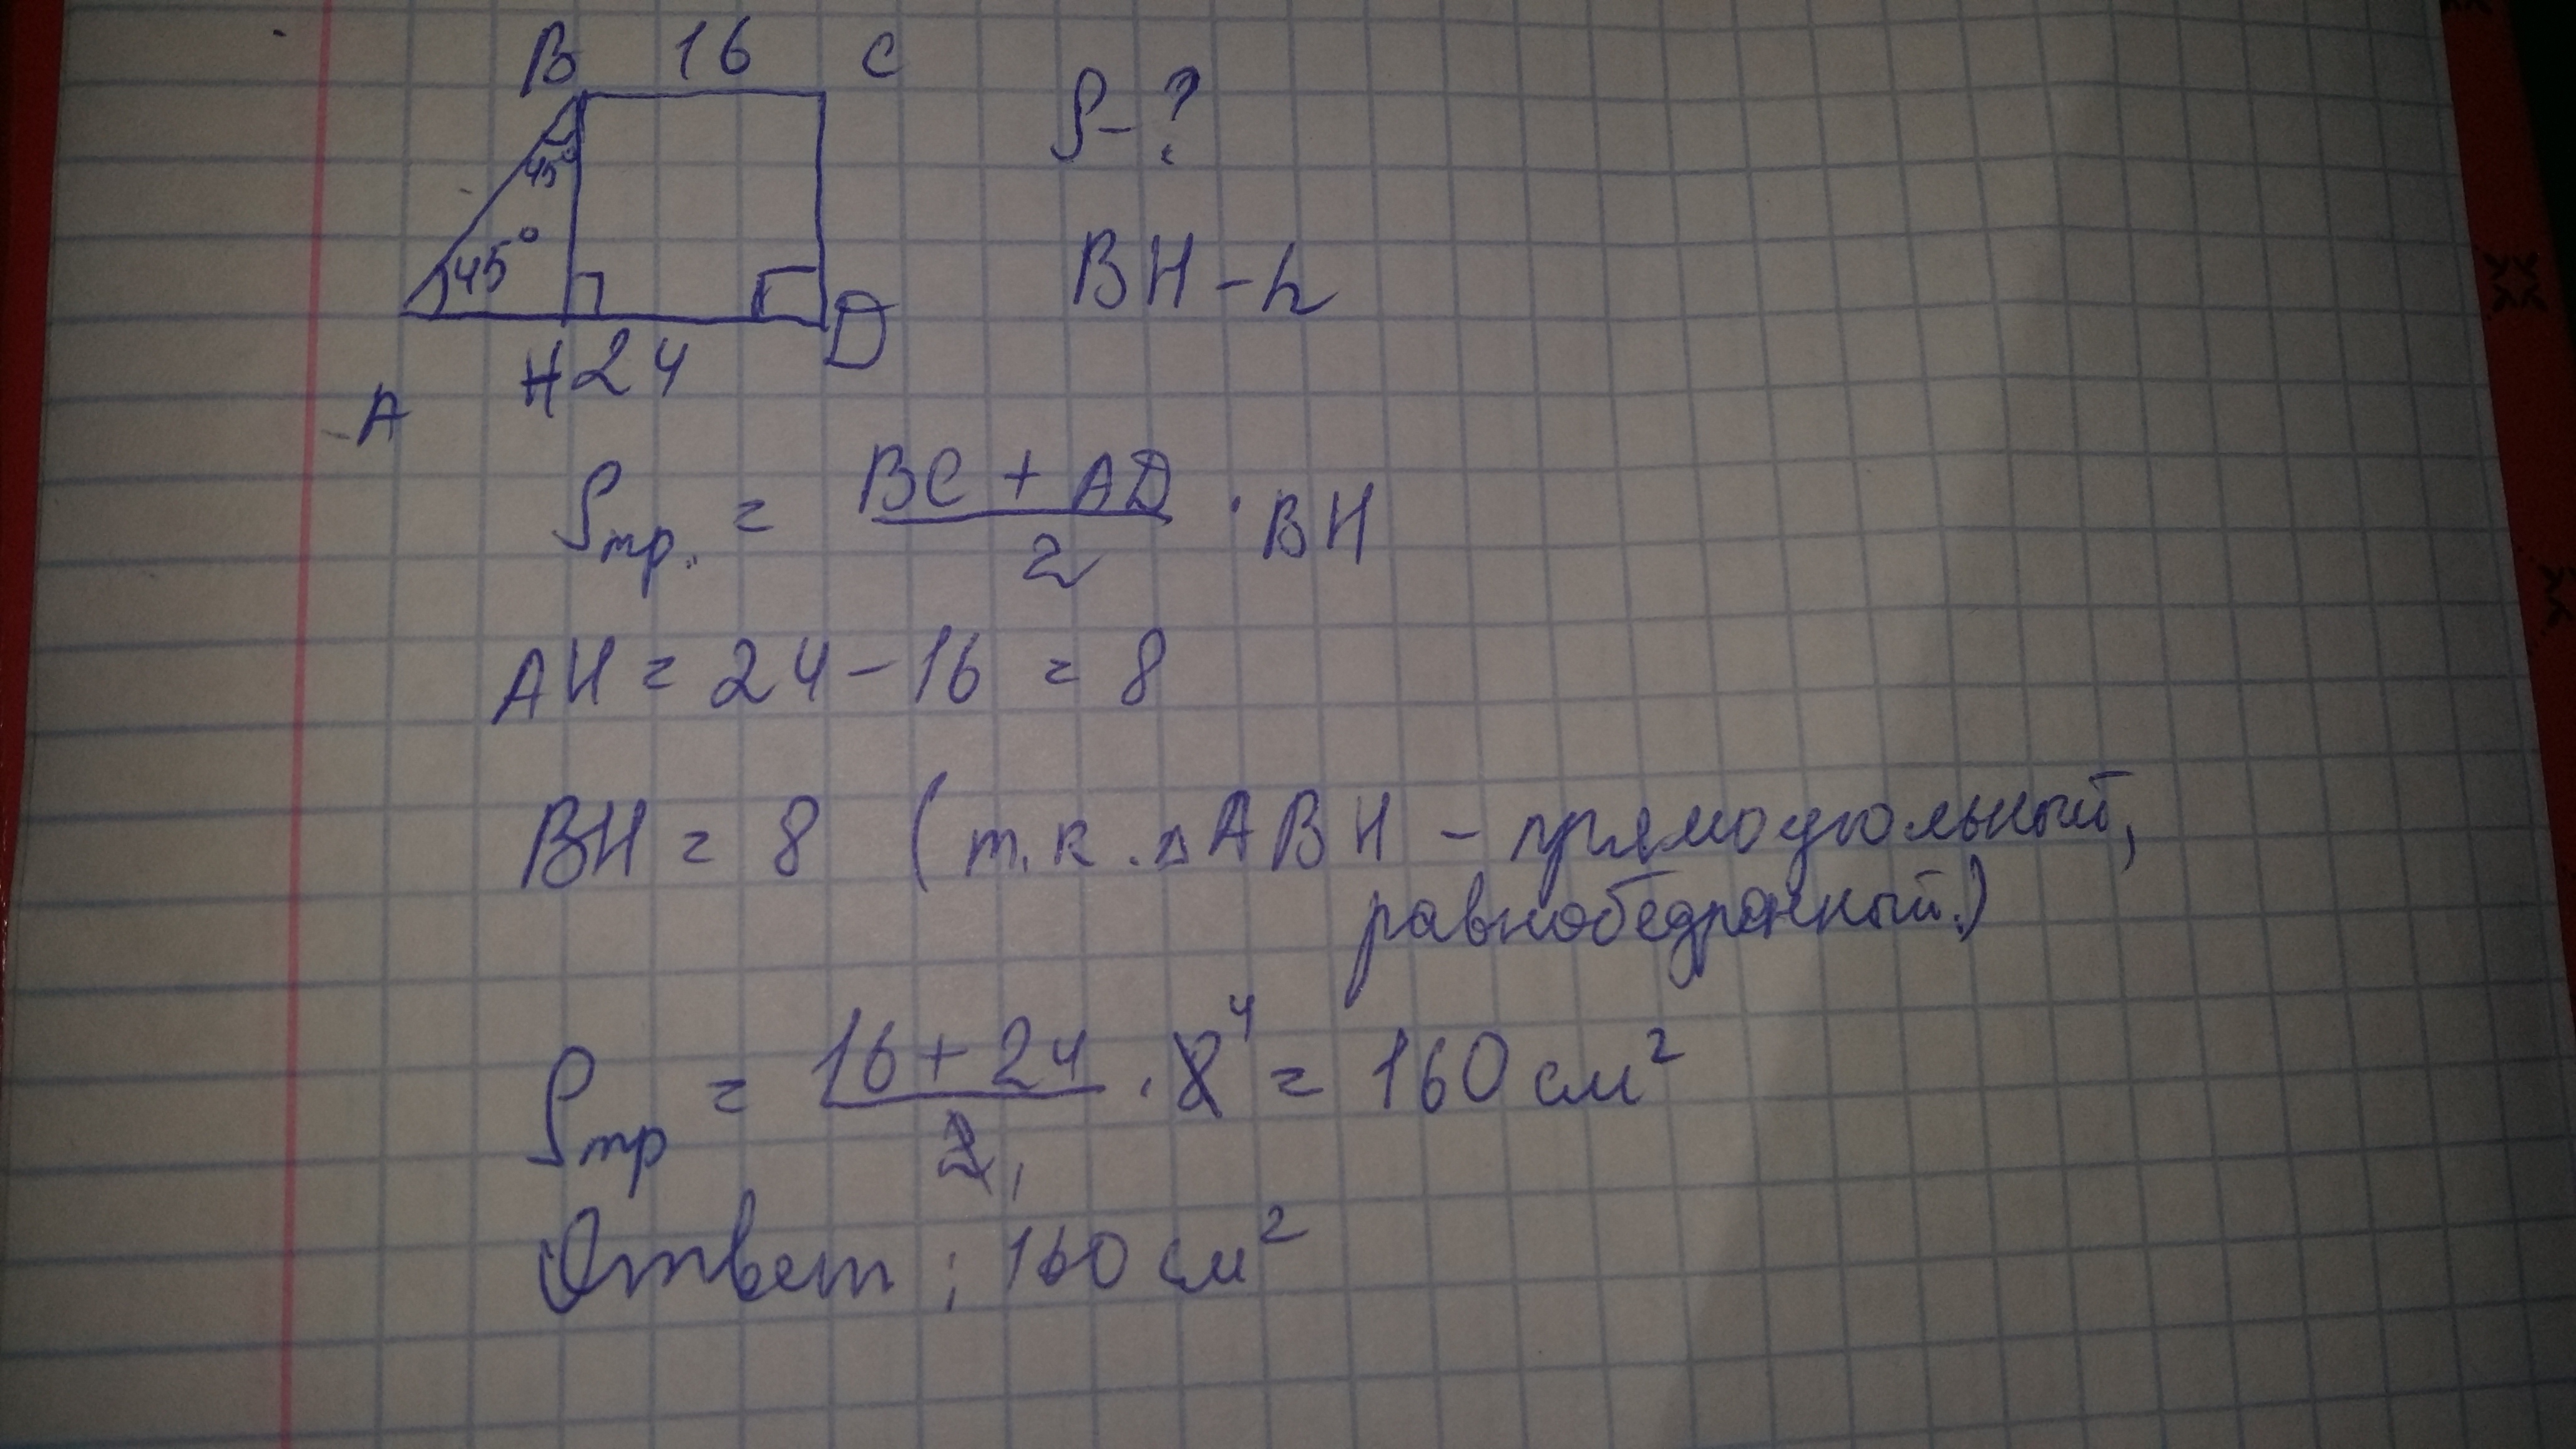 B 16 C
S - ?
45°
45°
BH - h
H 24 D
A
Sтр. = (BC + AD)/2 · BH
AH = 24 - 16 = 8
BH = 8 (т.к. △ABH - прямоугольный,
равнобедренный.)
Sтр = (16 + 24)/2 1 · 8 4 = 160 см²
Ответ: 160 см²